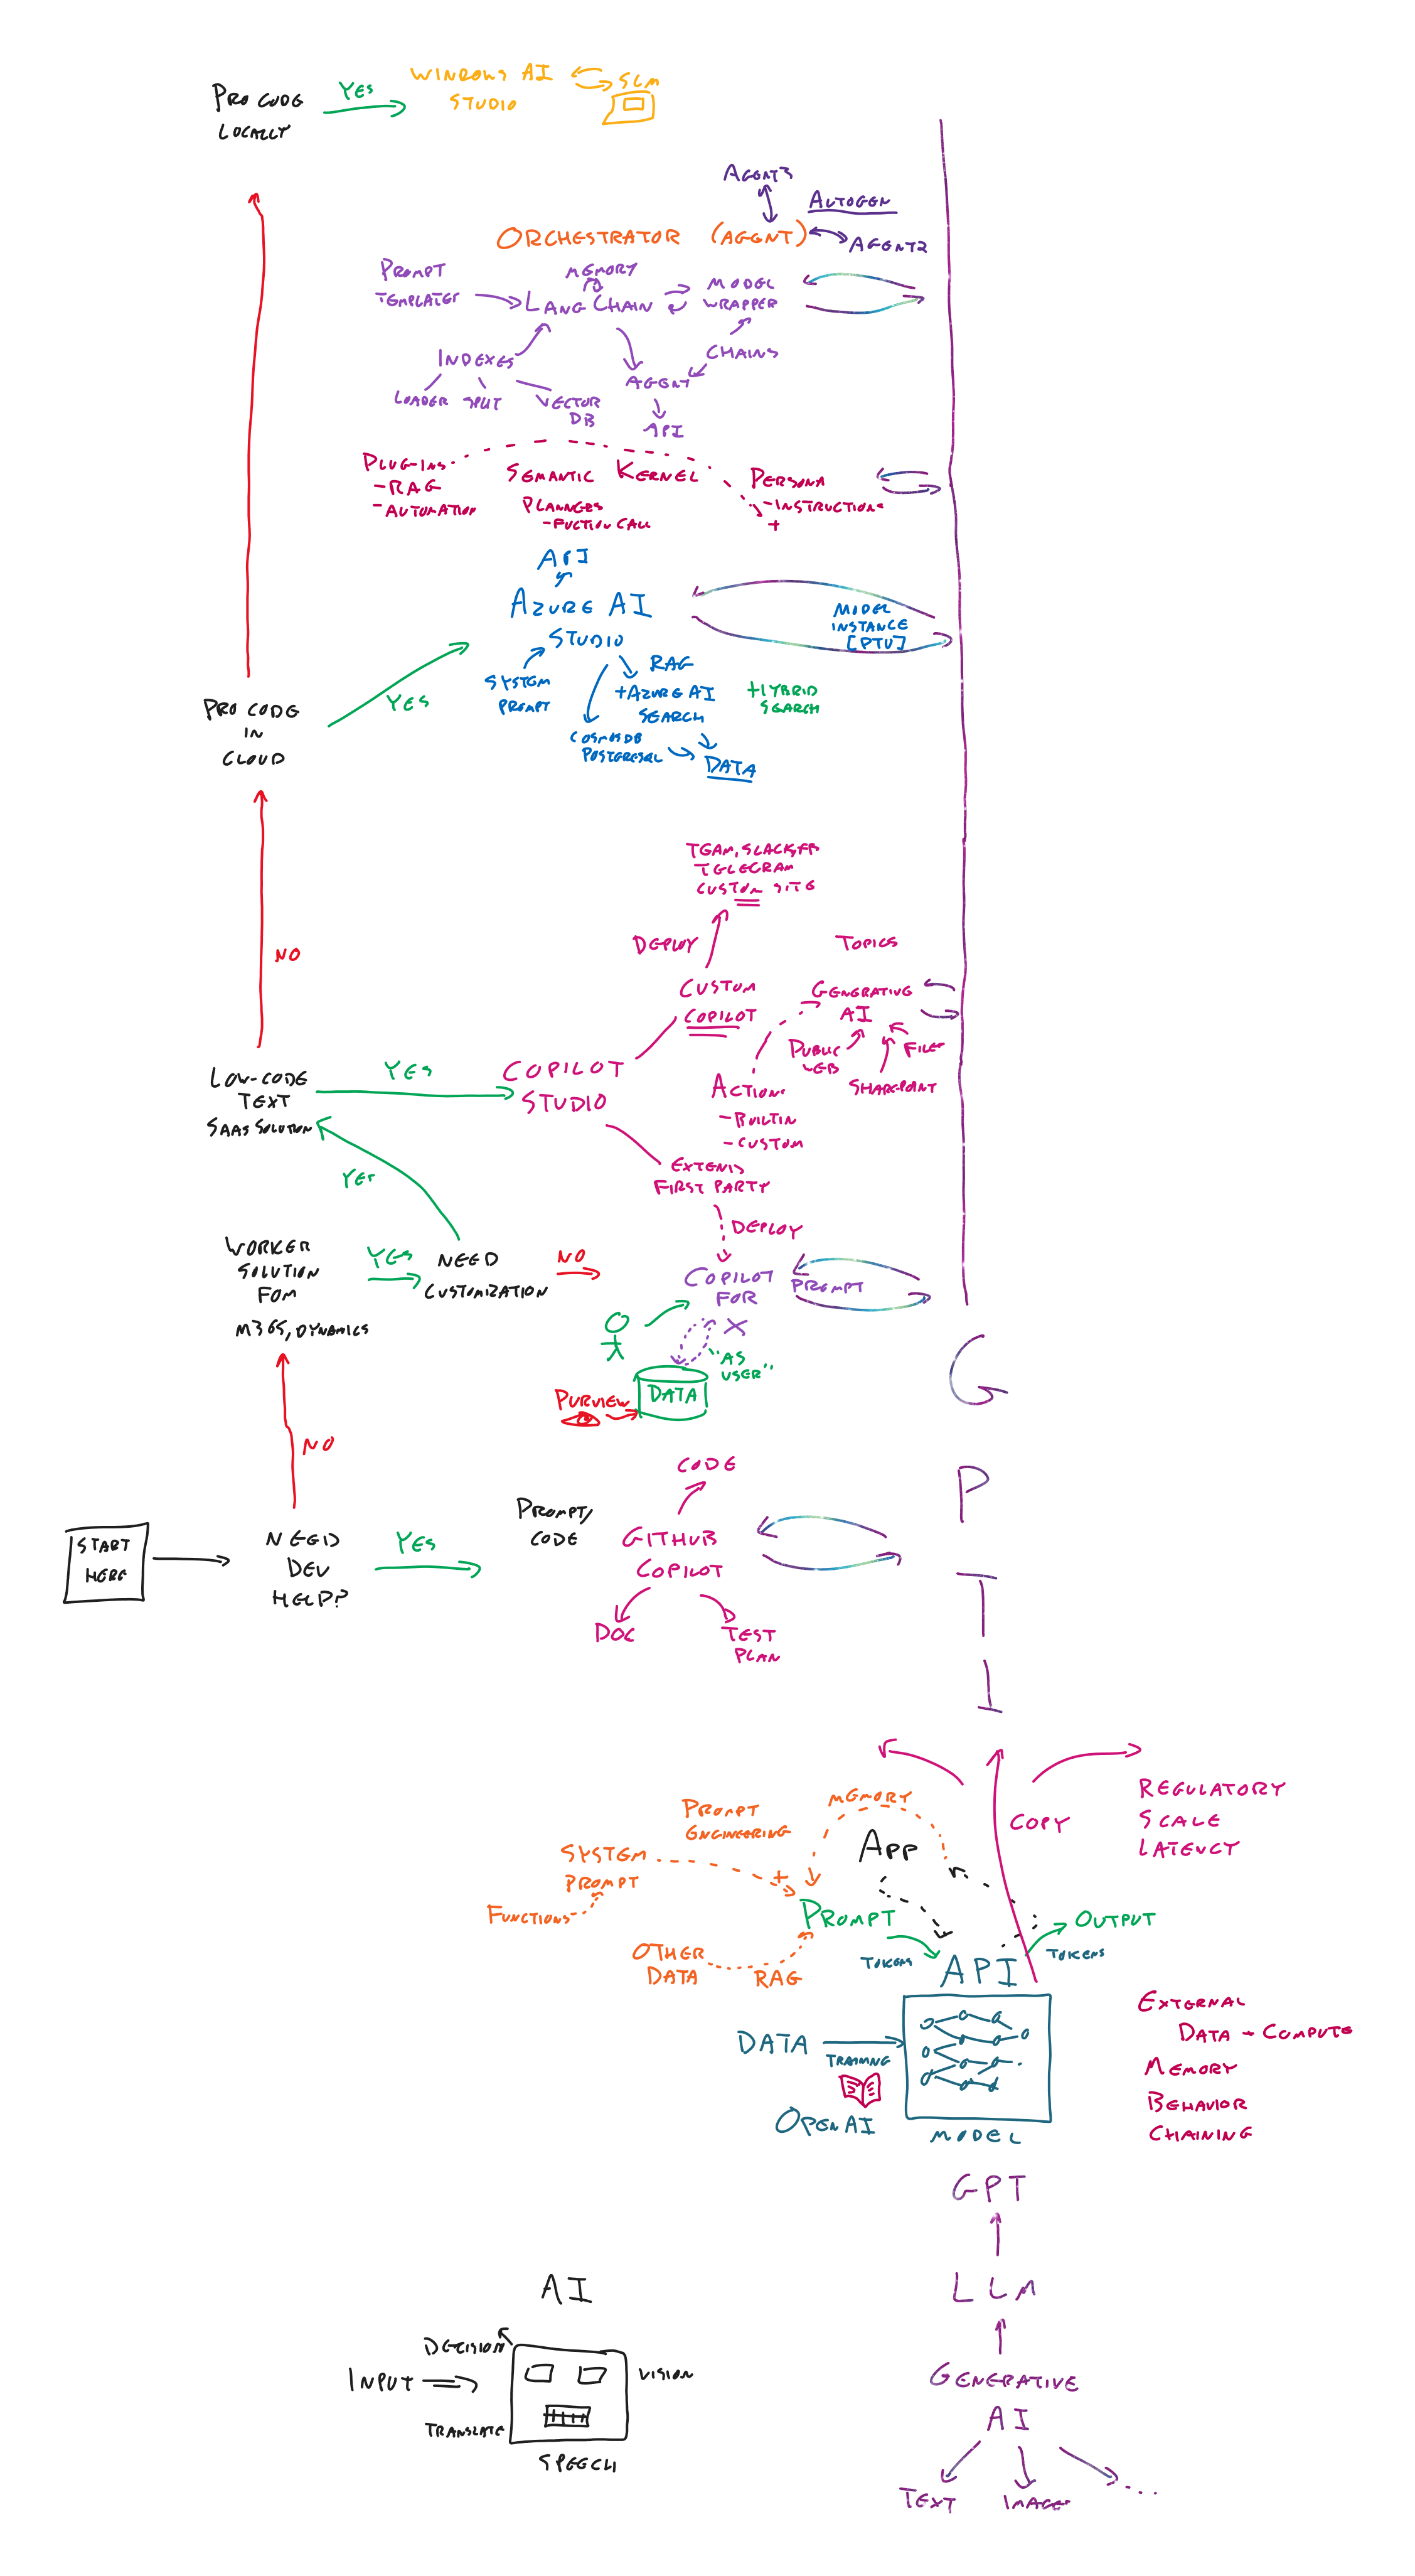 PRO CODE
LOCALLY
YES
WINDOWS AI
STUDIO
SLM
AGENT3
AUTOGEN
ORCHESTRATOR (AGENT)
AGENT2
PROMPT
TEMPLATES
MEMORY
LANG CHAIN
MODEL
WRAPPER
CHAINS
INDEXES
LOADER SPLIT
VECTOR
DB
AGENT
API
PLUG-INS
-RAG
-AUTOMATION
SEMANTIC KERNEL
PLANNERS
-FUCTION CALL
PERSONA
-INSTRUCTIONS
+
API
AZURE AI
STUDIO
MODEL
INSTANCE
[PTU]
SYSTEM
PROMPT
RAG
+AZURE AI
SEARCH
+HYBRID
SEARCH
COSMOSDB
POSTGRESQL
DATA
YES
PRO CODE
IN
CLOUD
NO
TEAM, SLACK, FB
TELEGRAM
CUSTOM SITE
DEPLOY
TOPICS
CUSTOM
COPILOT
GENERATIVE
AI
PUBLIC
WEB
FILES
SHAREPOINT
ACTIONS
-BUILTIN
-CUSTOM
LOW-CODE
TEXT
SAAS SOLUTION
YES
COPILOT
STUDIO
EXTEND
FIRST PARTY
DEPLOY
YES
WORKER
SOLUTION
FOM
M365, DYNAMICS
YES
NEED
CUSTOMIZATION
NO
COPILOT
FOR
X
PROMPT
"AS
USER"
DATA
PURVIEW
NO
G
P
T
I
START
HERE
NEED
DEV
HELP?
YES
PROMPT/
CODE
CODE
GITHUB
COPILOT
DOC
TEST
PLAN
COPY
REGULATORY
SCALE
LATENCY
MEMORY
PROMPT
ENGINEERING
APP
SYSTEM
PROMPT
+
FUNCTIONS
PROMPT
OUTPUT
TOKENS
TOKENS
OTHER
DATA
RAG
API
DATA
TRAINING
OPENAI
MODEL
EXTERNAL
DATA + COMPUTE
MEMORY
BEHAVIOR
CHAINING
GPT
LLM
GENERATIVE
AI
TEXT
IMAGES
....
AI
DECISION
INPUT
VISION
TRANSLATE
SPEECH